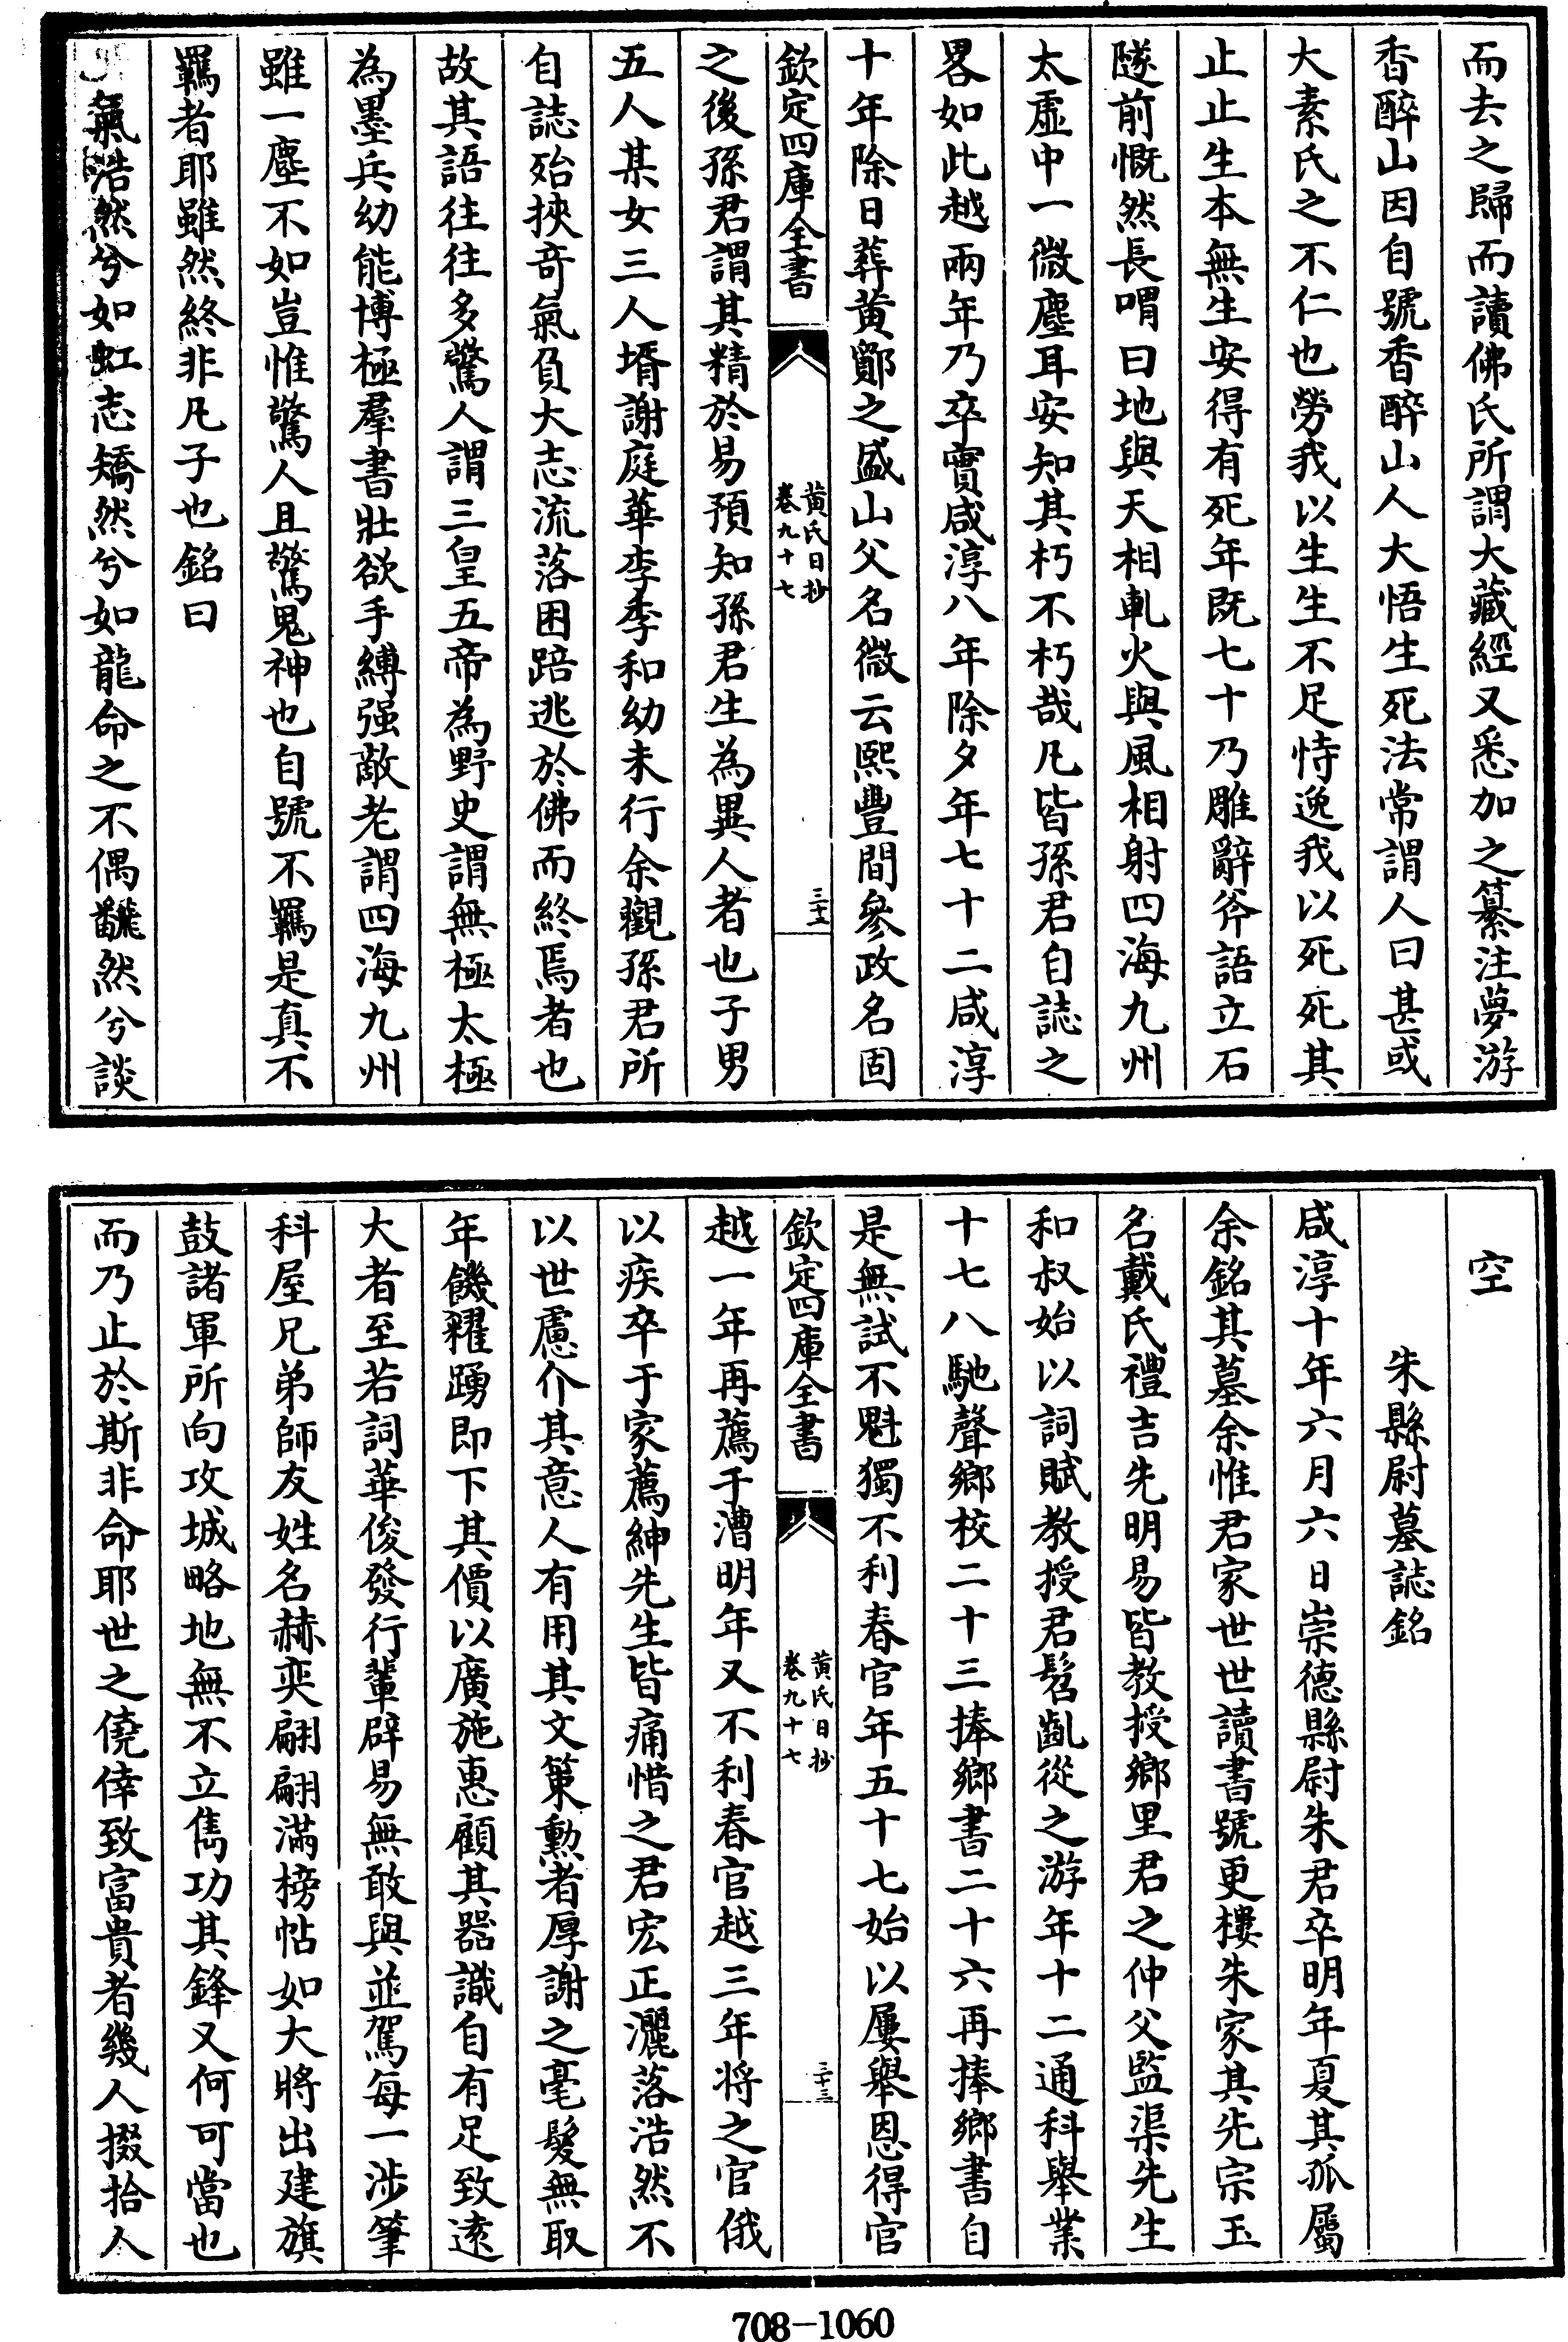 而去之歸而讀佛氏所謂大藏經又悉加之纂注夢游
香醉山因自號香醉山人大悟生死法常謂人曰甚或
大素氏之不仁也勞我以生生不足恃逸我以死死其
止止生本無生安得有死年既七十乃雕辭斧語立石
隧前慨然長喟曰地與天相軋火與風相射四海九州
太虛中一微塵耳安知其朽不朽哉凡皆孫君自誌之
畧如此越兩年乃卒實咸淳八年除夕年七十二咸淳
十年除日葬黄鄮之盛山父名微云熙豐間參政名固
欽定四庫全書
黄氏日抄
卷九十七
三十二
之後孫君謂其精於易預知孫君生為異人者也子男
五人某女三人壻謝庭華李季和幼未行余觀孫君所
自誌殆挾奇氣負大志流落困踣逃於佛而終焉者也
故其語往往多驚人謂三皇五帝為野史謂無極太極
為墨兵幼能博極羣書壯欲手縛强敵老謂四海九州
雖一塵不如豈惟驚人且驚鬼神也自號不羈是真不
羈者耶雖然終非凡子也銘曰
氣浩然兮如虹志矯然兮如龍命之不偶飜然兮談
空
朱縣尉墓誌銘
咸淳十年六月六日崇德縣尉朱君卒明年夏其孤屬
余銘其墓余惟君家世世讀書號更樓朱家其先宗玉
名戴氏禮吉先明易皆教授鄉里君之仲父監渠先生
和叔始以詞賦教授君髫齔從之游年十二通科舉業
十七八馳聲鄉校二十三捧鄉書二十六再捧鄉書自
是無試不魁獨不利春官年五十七始以屢舉恩得官
欽定四庫全書
黄氏日抄
卷九十七
三十三
越一年再薦于漕明年又不利春官越三年将之官俄
以疾卒于家薦紳先生皆痛惜之君宏正灑落浩然不
以世慮介其意人有用其文策勲者厚謝之毫髮無取
年饑糴踴即下其價以廣施惠顧其器識自有足致逺
大者至若詞華俊發行輩辟易無敢與並駕每一涉筆
科屋兄弟師友姓名赫奕翩翩滿榜帖如大將出建旗
鼓諸軍所向攻城略地無不立雋功其鋒又何可當也
而乃止於斯非命耶世之僥倖致富貴者幾人掇拾人
708-1060